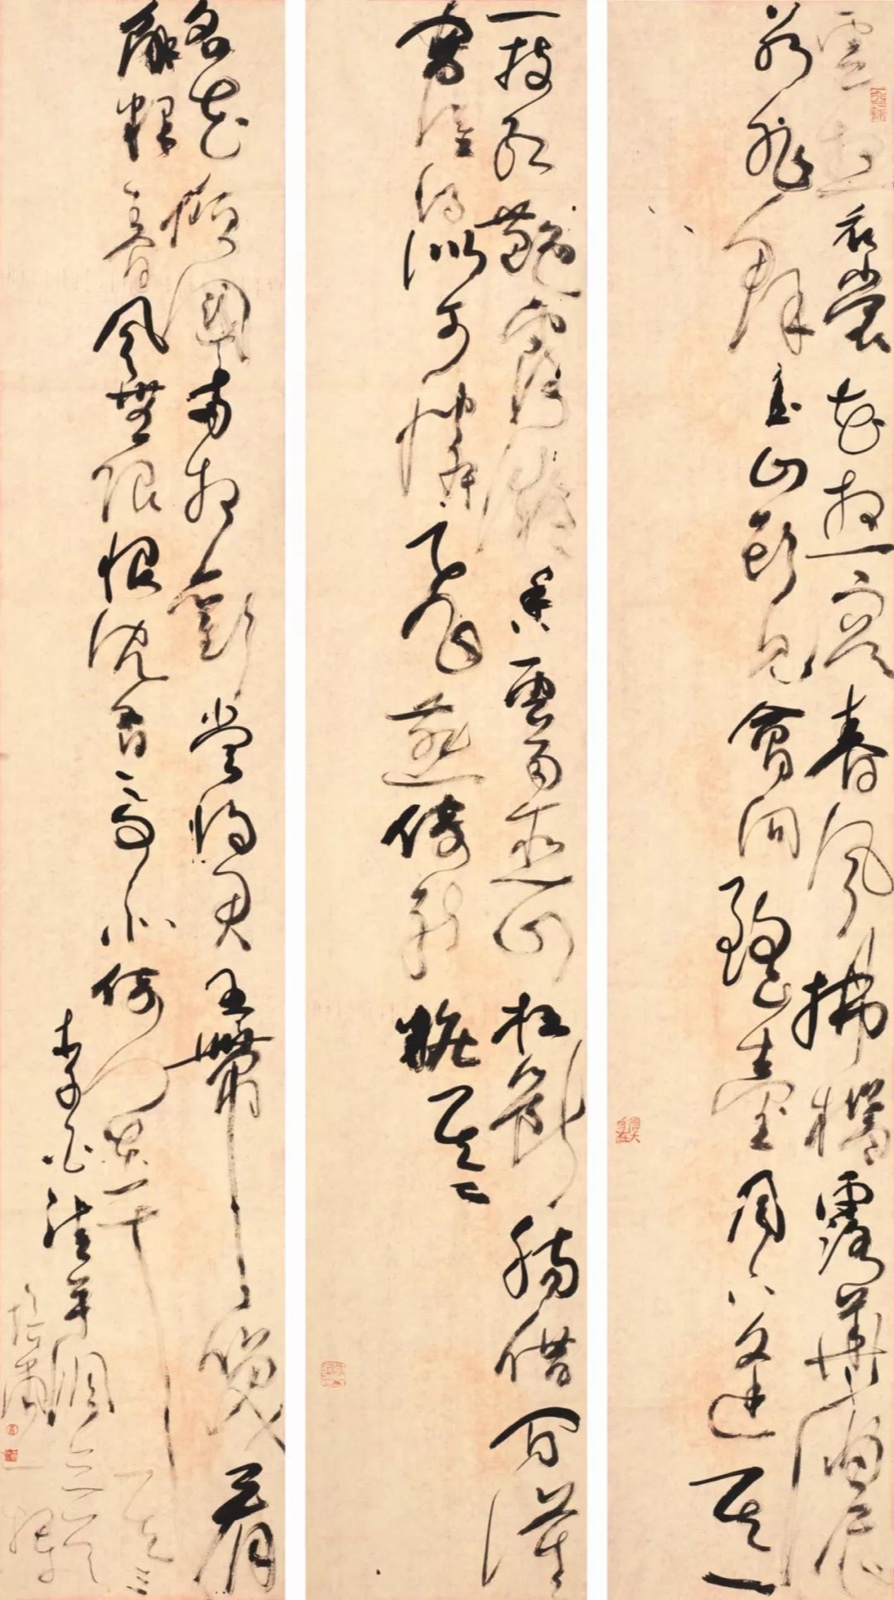 雲想衣裳花想容春風拂檻露華濃
若非群玉山頭見會向瑤臺月下逢 其一
一枝紅艷露凝香雲雨巫山枉斷腸借問漢
宮誰得似可憐飛燕倚新粧 其二
名花傾國兩相歡常得君王帶笑看
解釋春風無限恨沉香亭北倚闌干 其三
李白清平調三